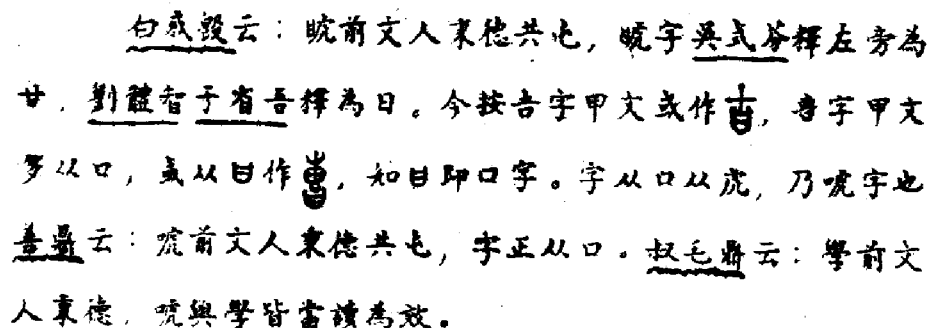 白𢦚𣪘云：前文人秉德共屯，字吳式芬釋左旁為
甘，劉體智于省吾釋為日。今按吉字甲文或作，字甲文
多从口，或从甘作，知甘即口字。字从口从虎，乃唬字也
善鼎云：唬前文人秉德共屯，字正从口。叔毛鼎云：學前文
人秉德，唬與學皆當讀為效。